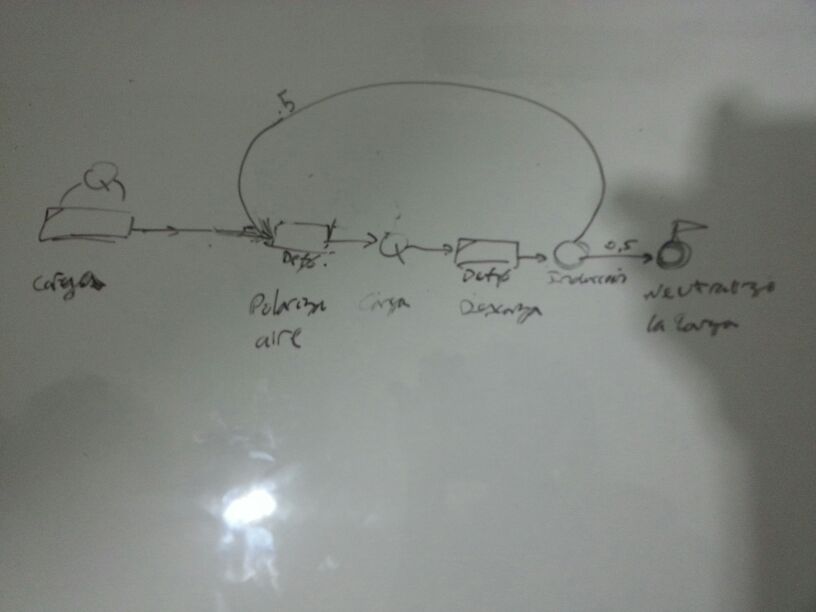 .5
0,5
Carga
Polariza
aire
Carga
Descarga
Inducción
Neutralizo
la Carga